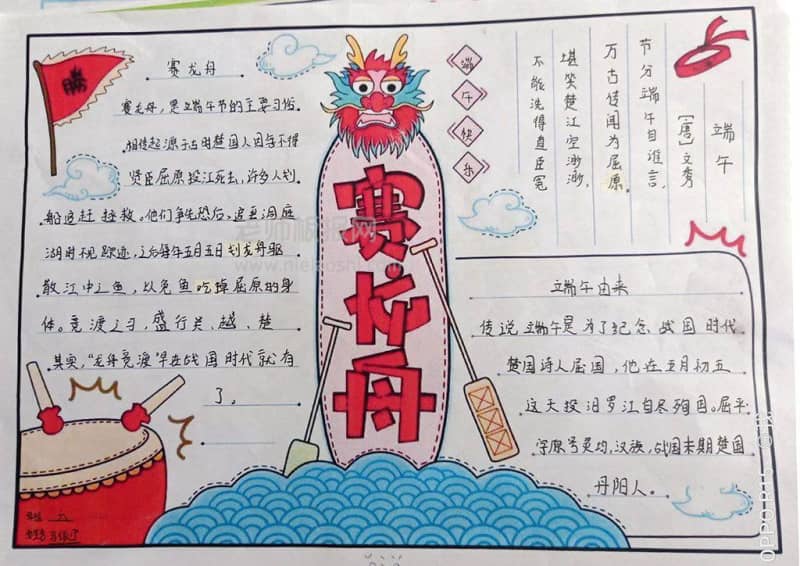 勝
赛龙舟
赛龙舟，是端午节的主要习俗。
相传起源于古时楚国人因舍不得
贤臣屈原投江死去，许多人划
船追赶拯救。他们争先恐后，追至洞庭
湖时不见踪迹，之后每年五月五日划龙舟驱
散江中之鱼，以免鱼吃掉屈原的身
体。竞渡之习，盛行吴、越、楚
其实，“龙舟竞渡”早在战国时代就有
了。
赛龙舟
端午快乐
端午
[唐]文秀
节分端午自谁言，
万古传闻为屈原。
堪笑楚江空渺渺，
不能洗得直臣冤
端午由来
传说端午是为了纪念战国时代
楚国诗人屈国，他在五月初五
这天投汨罗江自尽殉国。屈平
字原号灵均，汉族，战国末期楚国
丹阳人。
老师板报网
OPPO R15